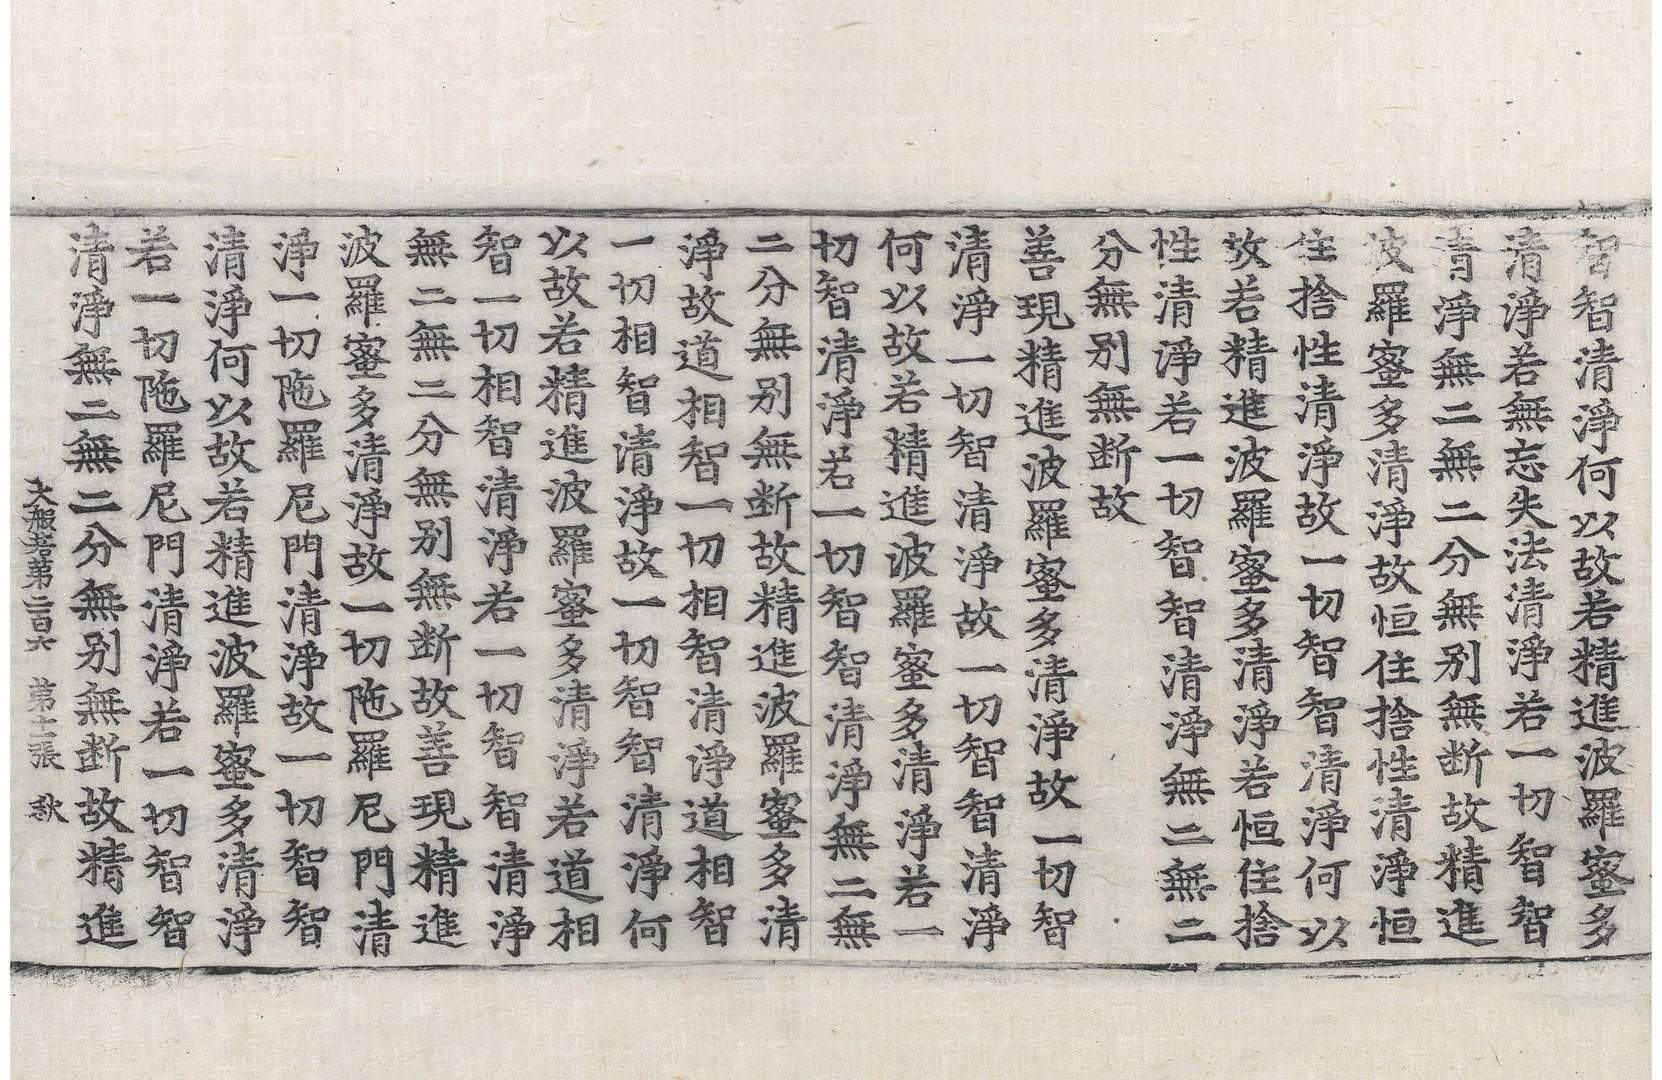 智智清淨何以故若精進波羅蜜多
清淨若無忘失法清淨若一切智智
清淨無二無二分無別無断故精進
波羅蜜多清淨故恒住捨性清淨恒
住捨性清淨故一切智智清淨何以
故若精進波羅蜜多清淨若恒住捨
性清淨若一切智智清淨無二無二
分無別無断故
善現精進波羅蜜多清淨故一切智
清淨一切智清淨故一切智智清淨
何以故若精進波羅蜜多清淨若一
切智清淨若一切智智清淨無二無
二分無別無断故精進波羅蜜多清
淨故道相智一切相智清淨道相智
一切相智清淨故一切智智清淨何
以故若精進波羅蜜多清淨若道相
智一切相智清淨若一切智智清淨
無二無二分無別無断故善現精進
波羅蜜多清淨故一切陁羅尼門清
淨一切陁羅尼門清淨故一切智智
清淨何以故若精進波羅蜜多清淨
若一切陁羅尼門清淨若一切智智
清淨無二無二分無別無断故精進
大般若第二百六 第十二張 㱃